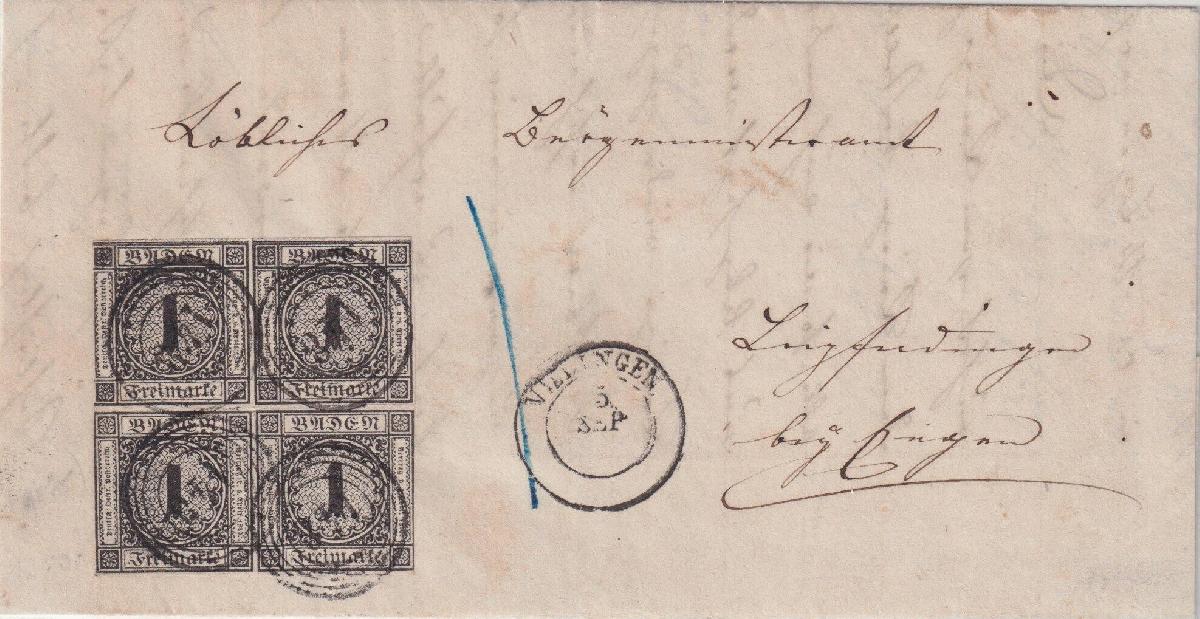 Löbliches Bürgermeisteramt
BADEN BADEN
1 1
Freimarke Freimarke
BADEN BADEN
1 1
Freimarke Freimarke
VILLINGEN
5.
SEP
Leipferdingen
bey Engen